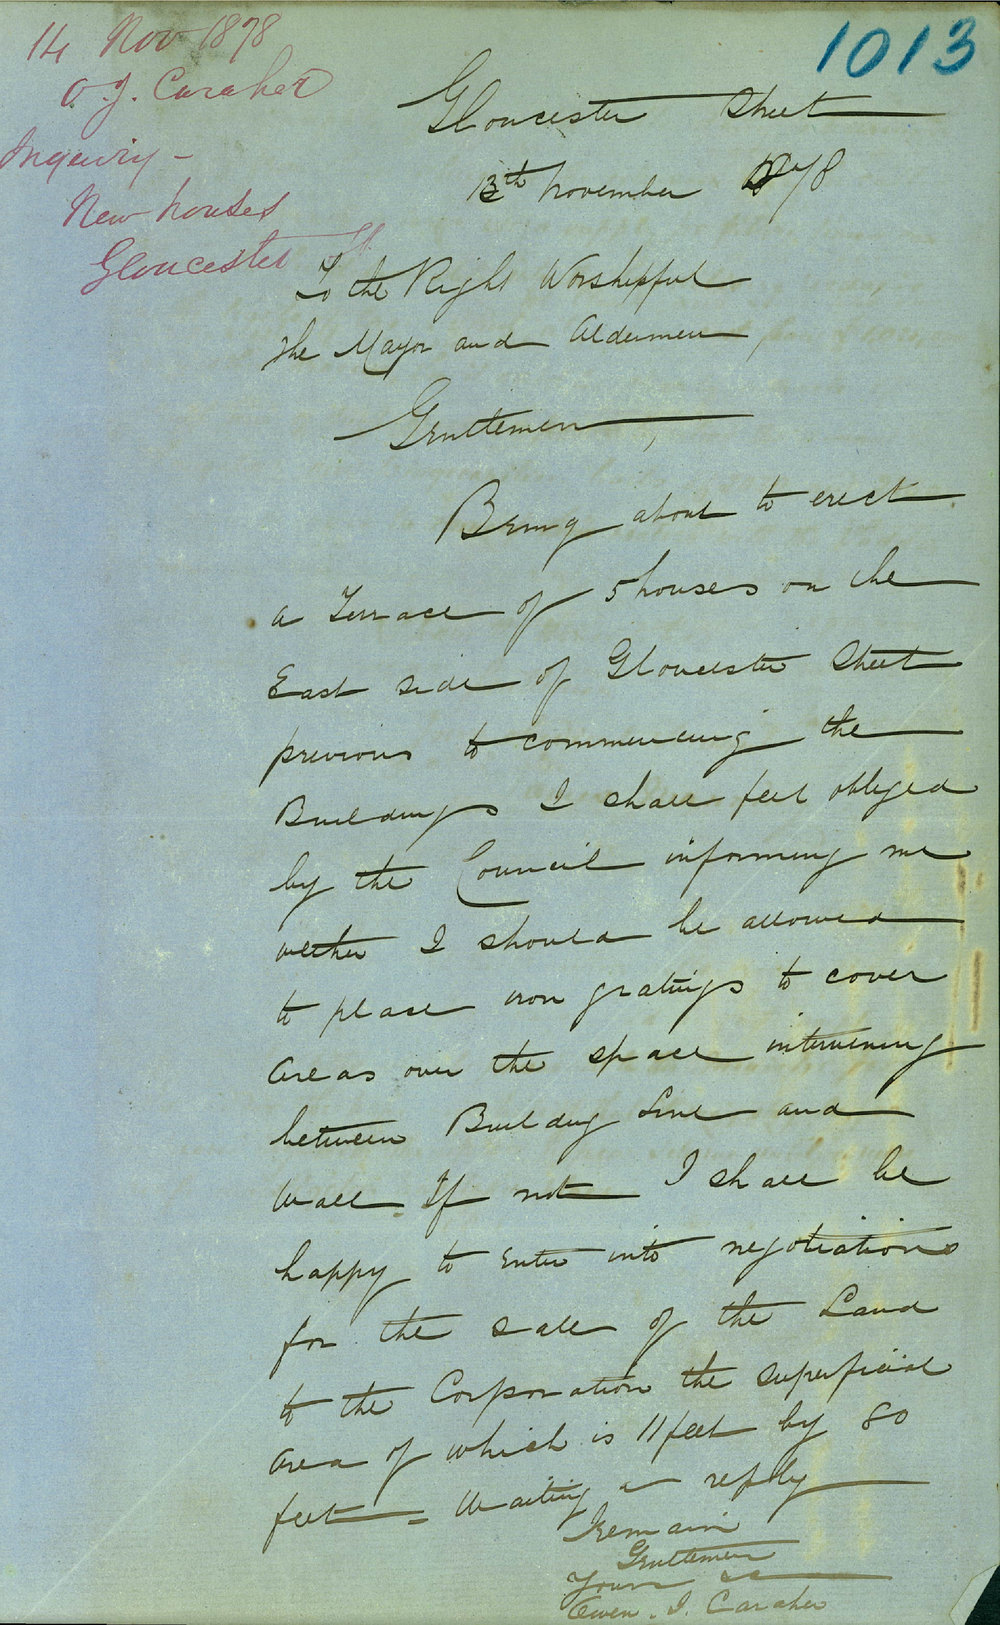 14 Nov 1878
O. J. Caraher
Inquiry -
New houses
Gloucester St
1013
Gloucester Street
13th November 1878
To the Right Worshipful
The Mayor and Aldermen
Gentlemen,
Being about to erect
a Terrace of 5 houses on the
East side of Gloucester Street
previous to commencing the
Buildings I shall feel obliged
by the Council informing me
wether I should be allowed
to place iron gratings to cover
areas over the space intervening
between Building Line and
Wall. If not I shall be
happy to Enter into negotiations
for the sale of the Land
to the Corporation the superficial
area of which is 11 feet by 80
feet = Waiting a reply
I remain
Gentlemen
Yours &c
Owen. J. Caraher